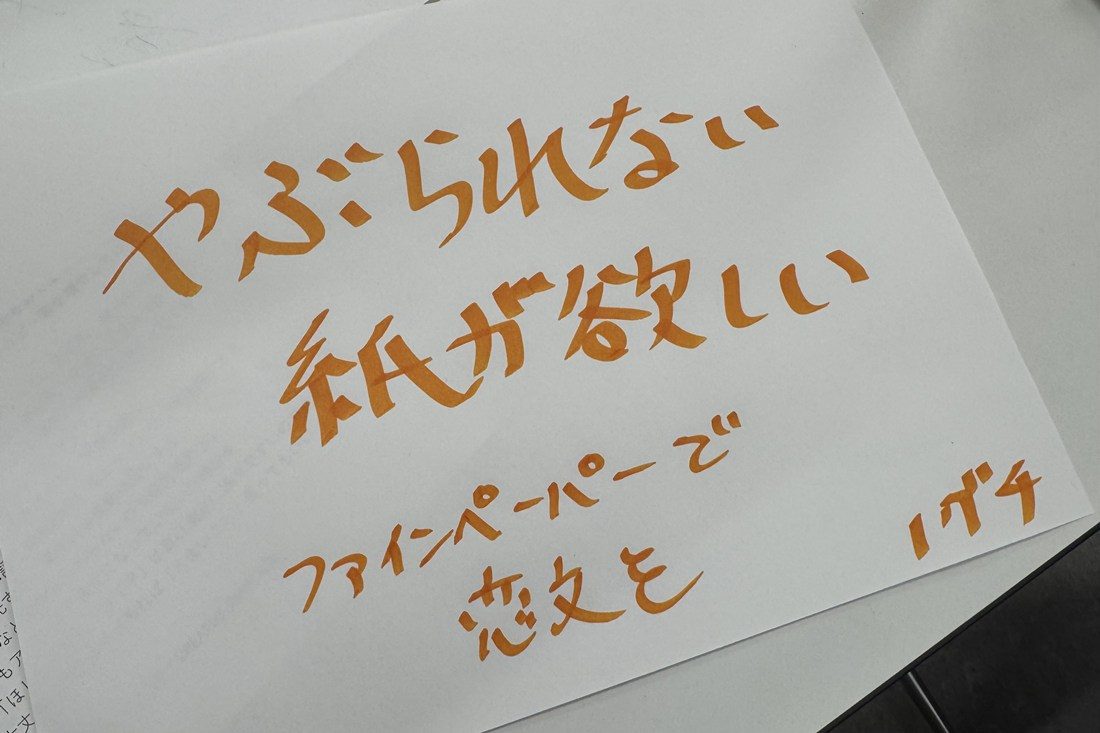 やぶられない
紙が欲しい
ファインペーパーで
恋文を
ノグチ